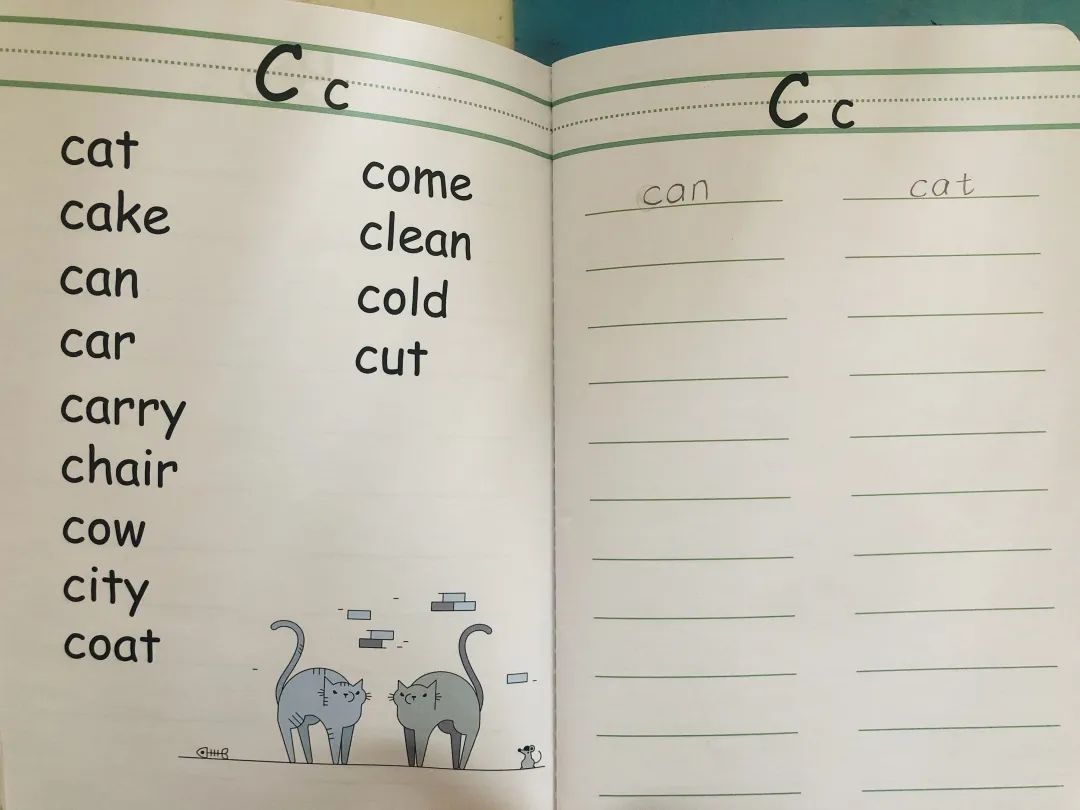 C c
cat
cake
can
car
carry
chair
cow
city
coat
come
clean
cold
cut
C c
can
cat